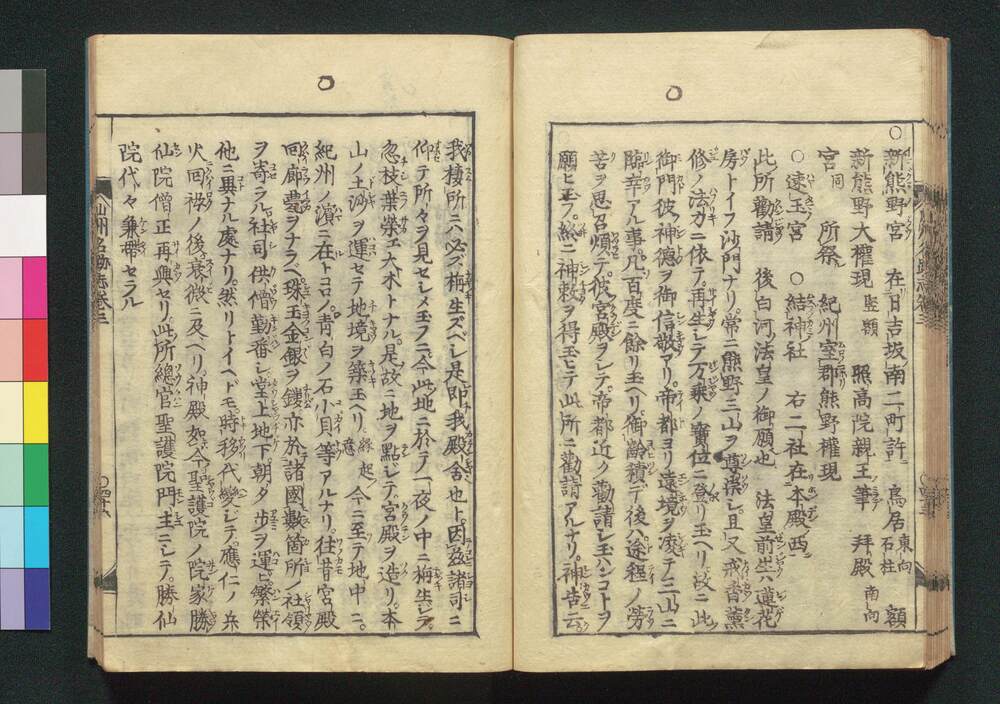 ○新熊野宮 在日吉坂南二町許ニ 鳥居東向石柱 額
新熊野大權現 竪額 照高院親王筆 拜殿南向
宮同 所祭 紀州室郡熊野權現
○速玉宮 ○結神社 右二社在本殿ノ西ニ
此所勸請 後白河ノ法皇ノ御願也 法皇前生ハ蓮花
房トイフ沙門ナリ常ニ熊野三山ヲ尊信シ且又戒香薰
修ノ法力ニ依テ再生シテ万乘ノ寶位ニ登リ玉ヘリ故ニ此
御門彼神德ヲ御信敬アリ帝都ヨリ遠境ヲ凌テ三山ニ
臨幸アル事凡百度ニ餘リ玉ヘリ御齡積テ後ハ途程ノ勞
苦ヲ思召煩テ彼宮殿ヲシテ帝都近ク勸請シ玉ハンコトヲ
願ヒ玉フ終ニ神敕ヲ得玉ヒテ此所ニ勸請アルナリ神告云
我棲所ニハ必ズ梅生ズベシ是即我殿舍也ト因茲諸司ニ
仰テ所々ヲ見セシメ玉フニ今此地ニ於テ一夜ノ中ニ梅生ジ
忽枝葉榮エ大木トナル是故ニ地ヲ點ジテ宮殿ヲ造リ本
山ノ土沙ヲ運セテ地境ヲ築玉ヘリ緣起意 今ニ至テ地中ニ
紀州ノ濱ニ在トコロノ青白ノ石小貝等アルナリ往昔宮殿
回廊甍ヲナラヘ珠玉金銀ヲ鏤亦於諸國數箇所ノ社領
ヲ寄ラル社司供僧勤番シ堂上地下朝夕步ヲ運ヒ繁榮
他ニ異ナル處ナリ然リトイヘドモ時移代變シテ應仁ノ兵
火回祿ノ後衰微ニ及ヘリ神殿如今聖護院ノ院家勝
仙院僧正再興セリ此所總官聖護院門主ニシテ勝仙
院代々兼帶セラル